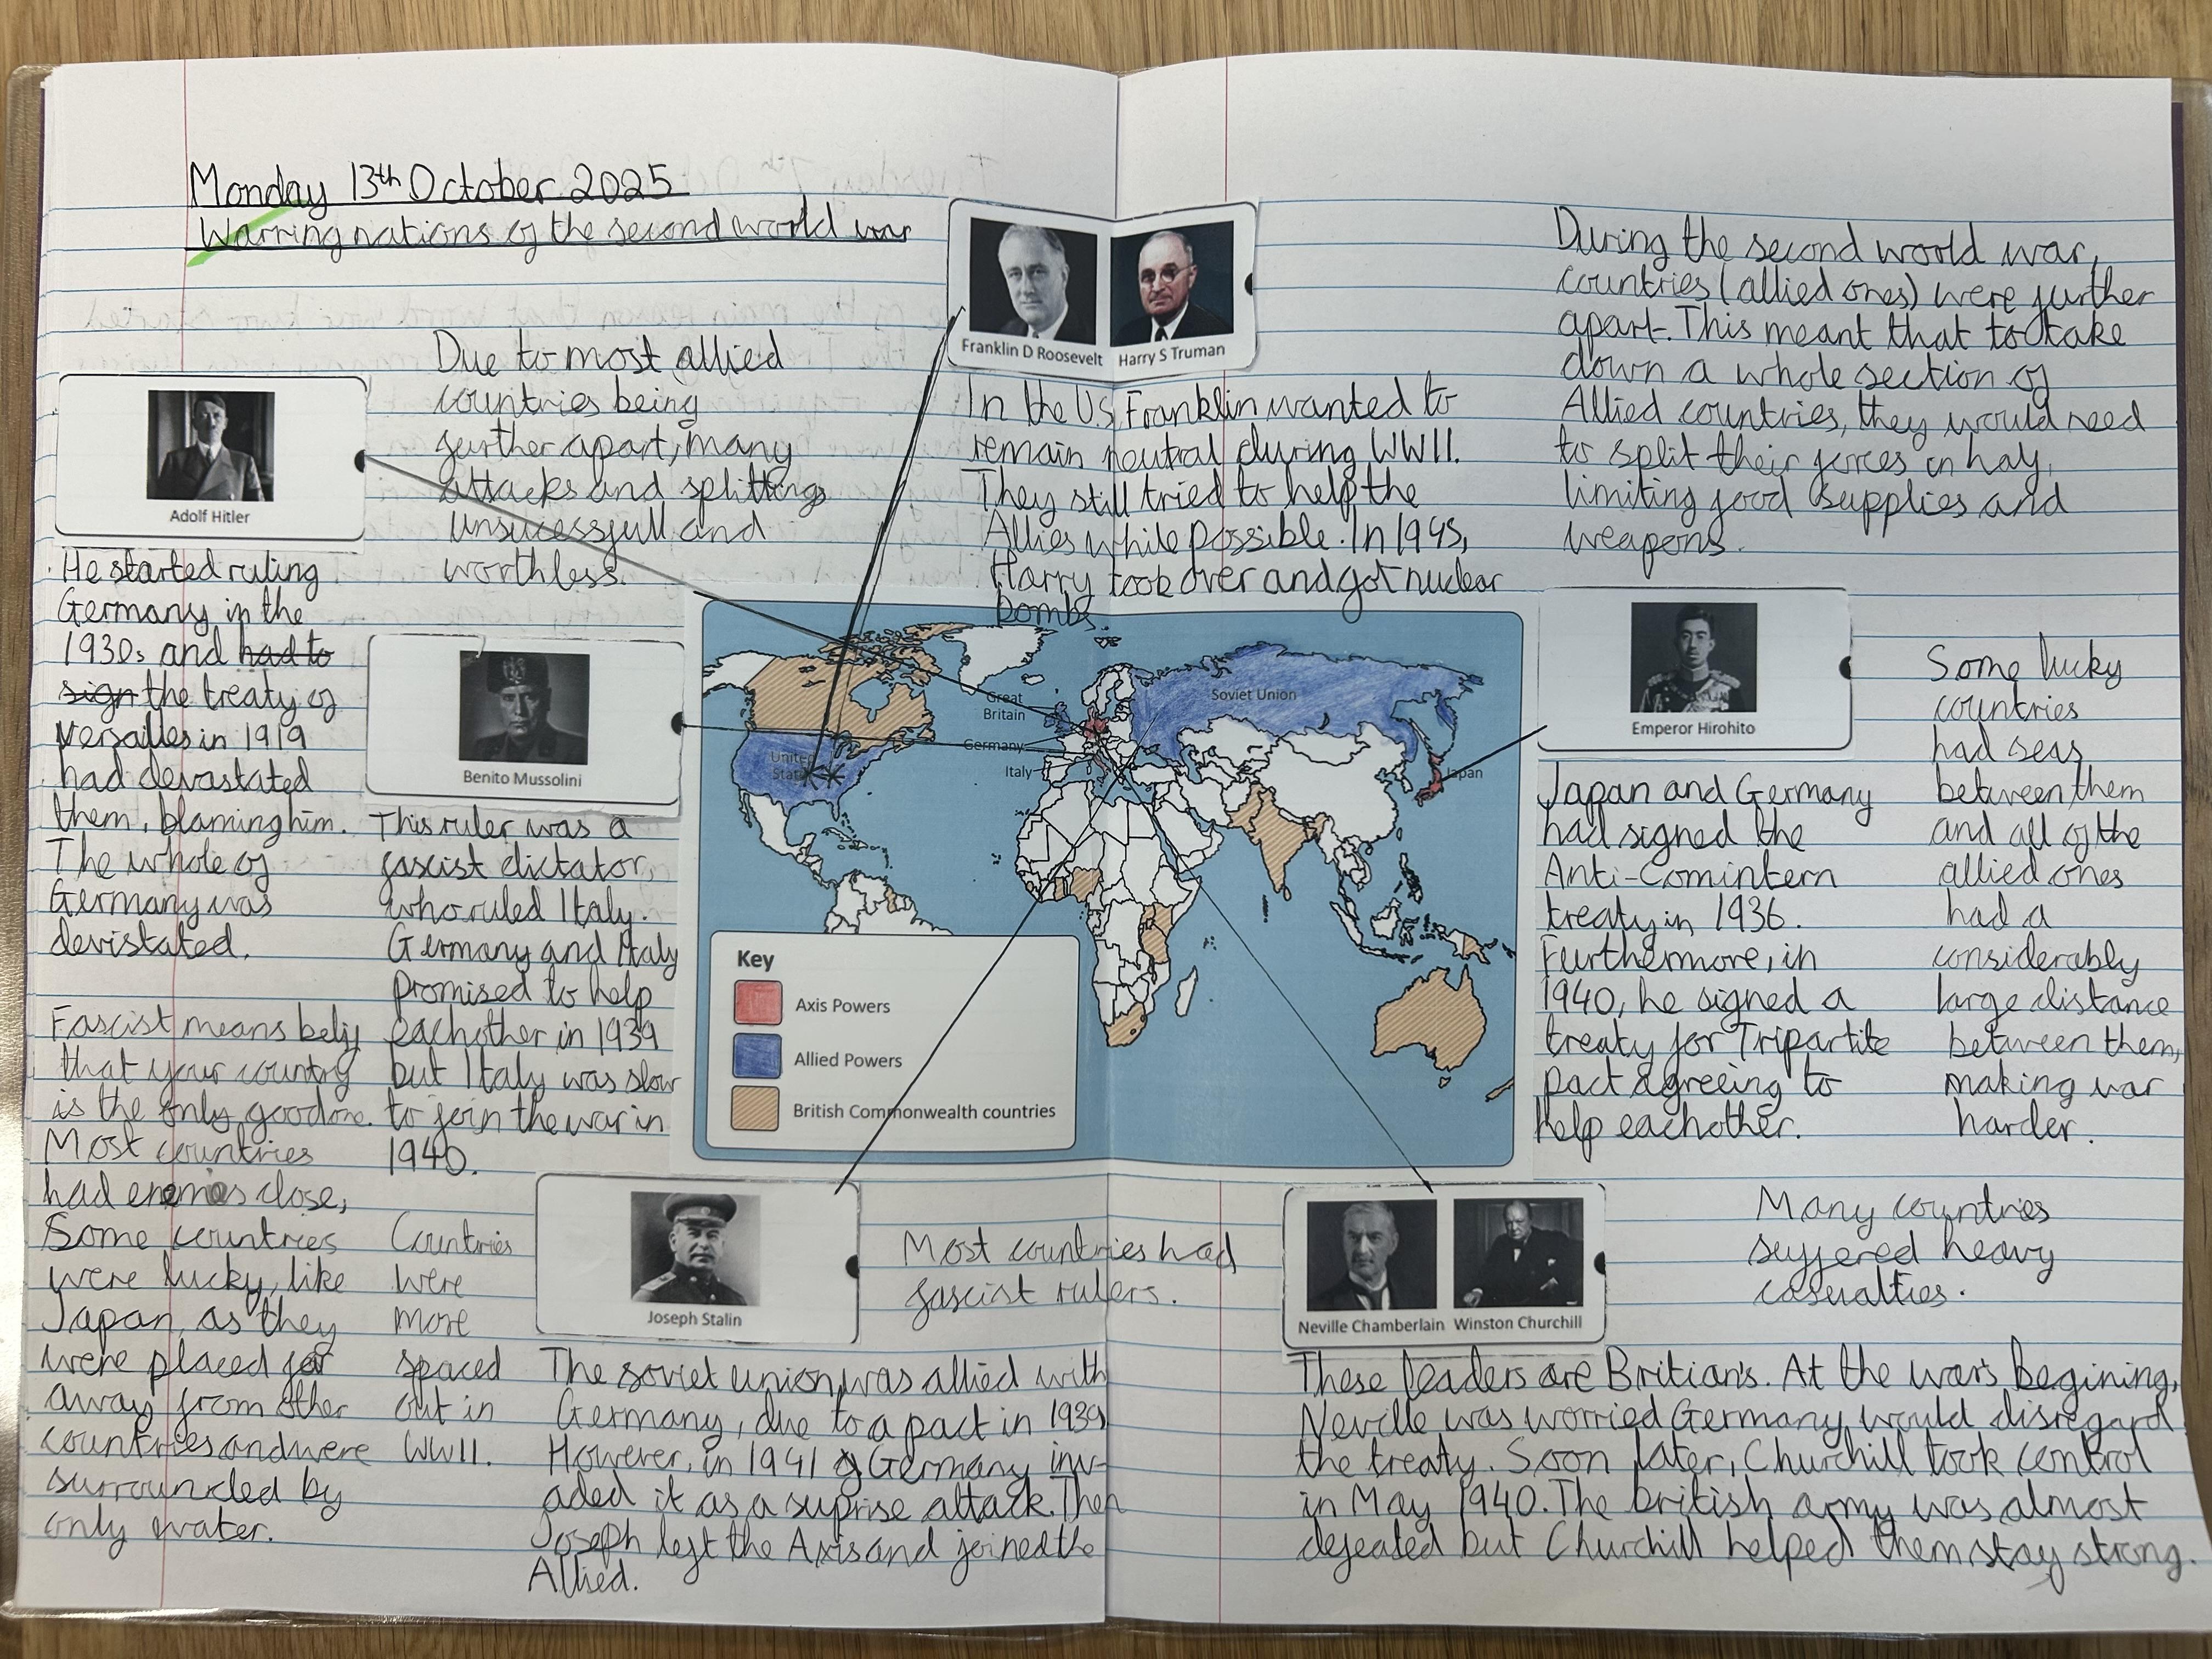 Monday 13th October 2025
Warring nations of the second world war
Franklin D Roosevelt
Harry S Truman
Due to most allied
countries being
further apart, many
attacks and splittings
unsucessfull and
worthless.
In the U.S, Franklin wanted to
remain neutral during WWII.
They still tried to help the
Allies while possible. In 1945,
Harry took over and got nuclear
bombs.
During the second world war,
countries (allied ones) were further
apart. This meant that to take
down a whole section of
Allied countries, they would need
to split their forces in half,
limiting food supplies and
weapons.
Adolf Hitler
He started ruling
Germany in the
1930s and had to
sign the treaty of
Versailles in 1919
had devastated
them, blaming him.
The whole of
Germany was
devistated.
Benito Mussolini
This ruler was a
fascist dictator,
who ruled Italy.
Germany and Italy
promised to help
eachother in 1939
but Italy was slow
to join the war in
1940.
Fascist means
that your country
is the only good one.
Most countries
had enemies close,
Some countries
were lucky, like
Japan, as they
were placed far
away from other
countries and were
surrounded by
only water.
Countries
were
more
spaced
out in
WWII.
Great
Britain
Germany
Italy
United
States
Soviet Union
Japan
Key
Axis Powers
Allied Powers
British Commonwealth countries
Emperor Hirohito
Japan and Germany
had signed the
Anti-Comintern
treaty in 1936.
Furthermore, in
1940, he signed a
treaty for Tripartite
pact agreeing to
help eachother.
Some lucky
countries
had seas
between them
and all of the
allied ones
had a
considerably
large distance
between them,
making war
harder.
Joseph Stalin
The soviet union was allied with
Germany, due to a pact in 1939
However, in 1941 Germany inv-
aded it as a suprise attack. Then
Joseph left the Axis and joined the
Allied.
Most countries had
fascist rulers.
Neville Chamberlain
Winston Churchill
These leaders are Britian's. At the war's begining,
Neville was worried Germany would disregard
the treaty. Soon later, Churchill took control
in May 1940. The british army was almost
defeated but Churchill helped them stay strong.
Many countries
suffered heavy
casualties.